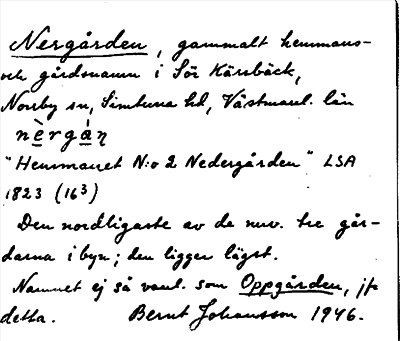 Nergården, gammalt hemmans-
och gårdsnamn i Sör Kärsbäck,
Norrby sn, Simtuna hd, Västmanl. län
nè̱rgà̱ŋ
"Hemmanet N:o 2 Nedergården" LSA
1823 (16³)
Den nordligaste av de nuv. tre går-
darna i byn; den ligger lägst.
Namnet ej så vanl. som Oppgården, jfr
detta. Bernt Johansson 1946.